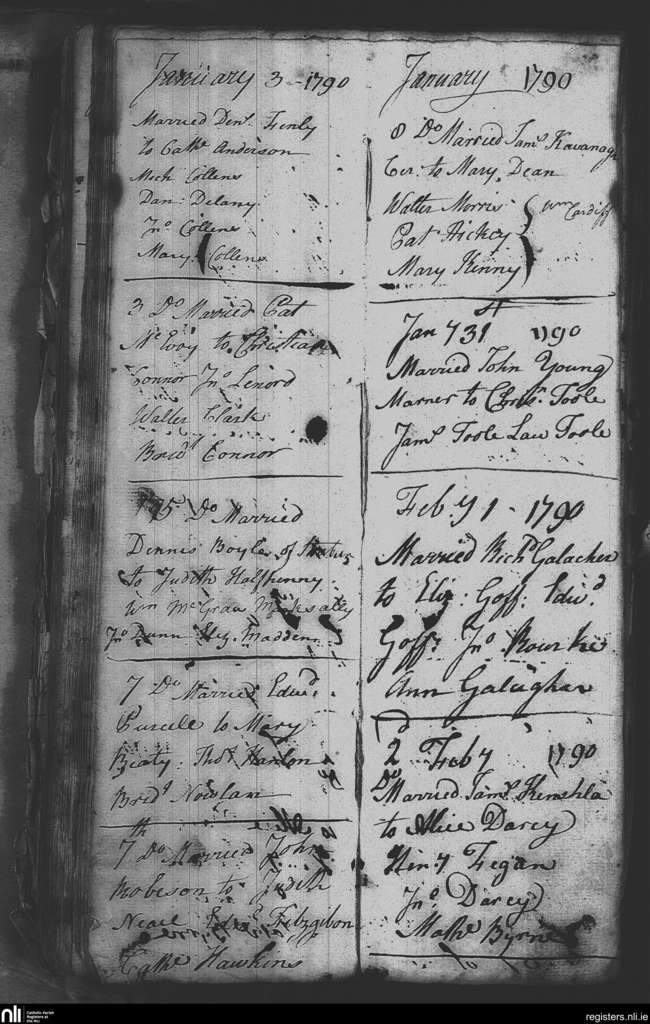 January 3 - 1790
Married Den.s Fenly
to Cathe Anderson
Mich Collens
Dan: Delany
Jno Collens
Mary Collens
3 Do Married Pat
Mc Evoy to Christian
Connor Jno Lenord
Walter Clark
Bridt Connor
5 Do Married
Dennis Boyle of
to Judith Halfpenny
Wm McGrau
Jno Dunn Elz. Madden
7 Do Married Edwd
Purcell to Mary
Beaty Thos Hanlon
Bridt Nowlan
7th Do Married John
Robeson to Judith
Neall Fitzgibon
Cathe Hawkins
January 1790
8 Do Married Jams Kavanagh
to Mary Dean
Walter Morris
Pat Hickey Wm Cardiff
Mary Kenny
Jany 31 1790
Married John Young
Marner to Chris. Toole
Jams Toole Lau Toole
Feby 1 - 1790
Married Richd Galacher
to Eliz. Goff. Edwd
Goff Jno Rourke
Ann Galaghar
2d Feby 1790
Do
Married Jams Kinshla
to Alice Darcy
Hiny Fegan
Jno Darcy
Mathw Byrne
nli
Catholic Parish
Registers at
the NLI
registers.nli.ie